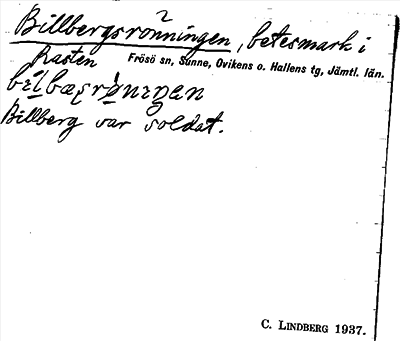 Billbergsronningen, betesmark i
Rasten Frösö sn, Sunne, Ovikens o. Hallens tg, Jämtl. län.
Billberg var soldat.
C. LINDBERG 1937.